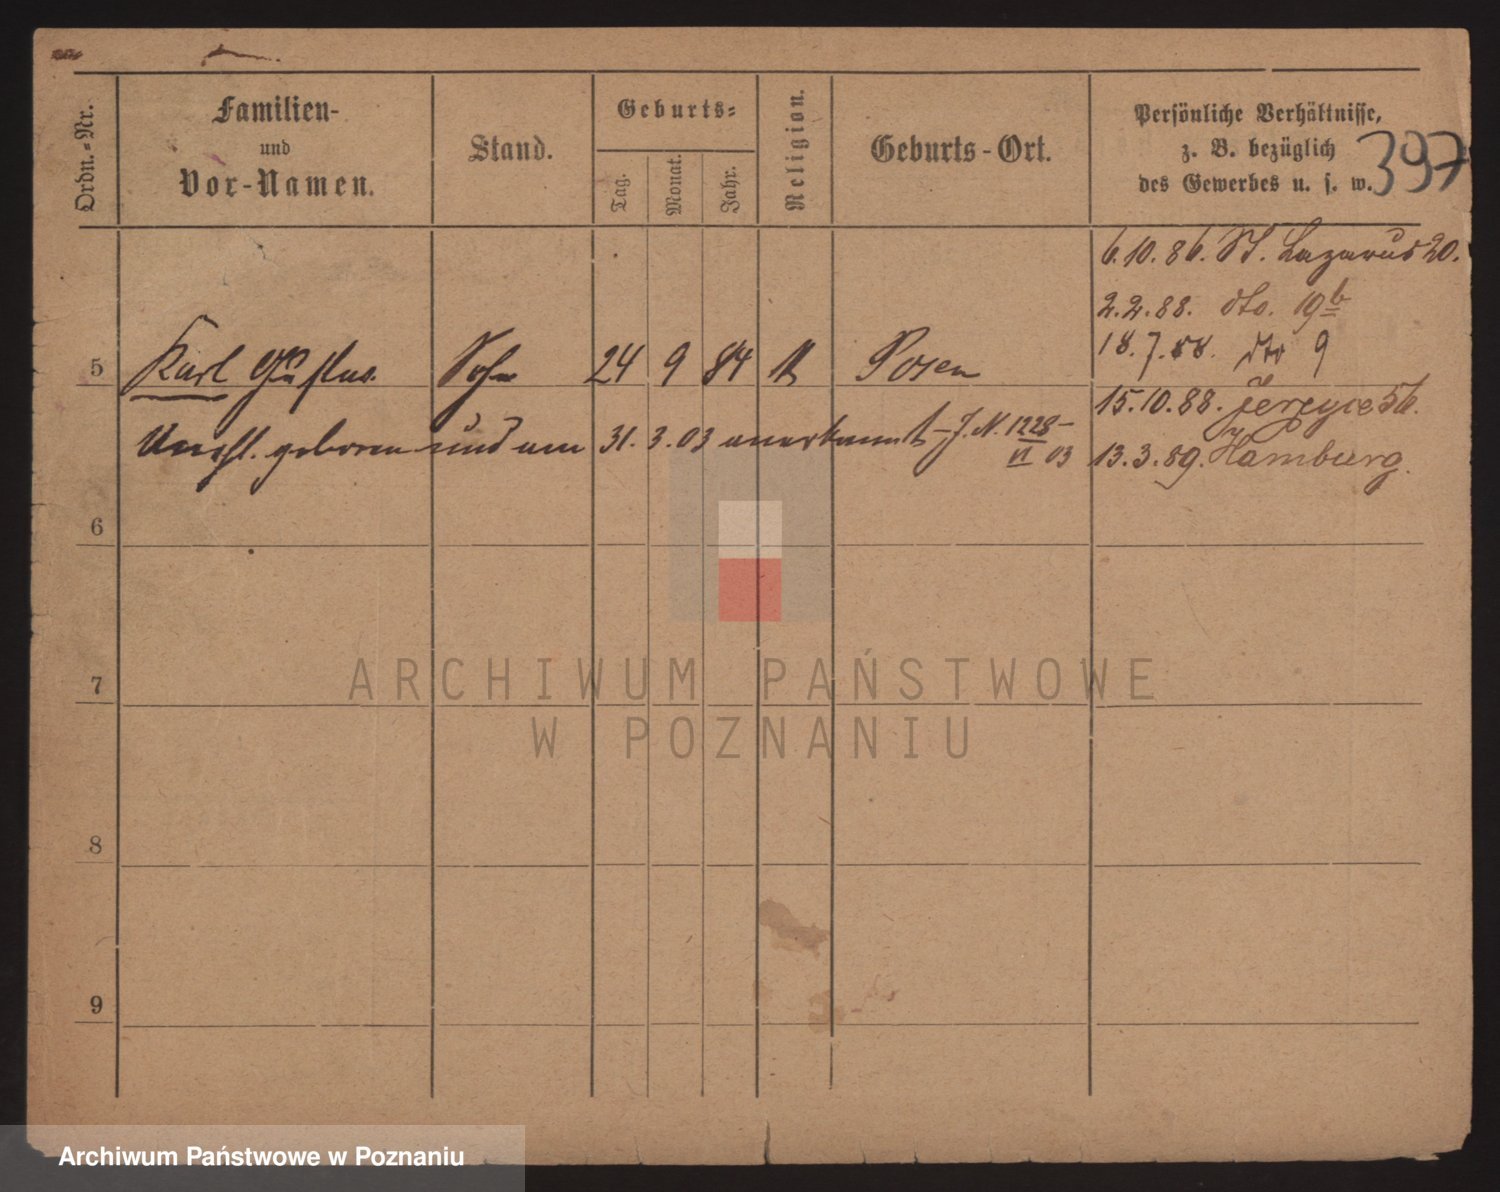 Ordn.-Nr.
Familien-
und
Vor-Namen.
Stand.
Geburts-
Tag.
Monat.
Jahr.
Religion.
Geburts-Ort.
Persönliche Verhältnisse,
z. B. bezüglich
des Gewerbes u. s. w.
397
6.10.86. St. Lazarus 20.
2.2.88. dto. 19b
18.7.88. dto 9
5 Karl Gustav. Sohn 24 9 84 Posen
15.10.88. Jerzyce 56.
Unehl. geboren und am 31.3.03 anerkannt - J.N. 1228
VI 03
13.3.89. Hamburg.
6
7
8
9
ARCHIWUM PAŃSTWOWE
W POZNANIU
Archiwum Państwowe w Poznaniu